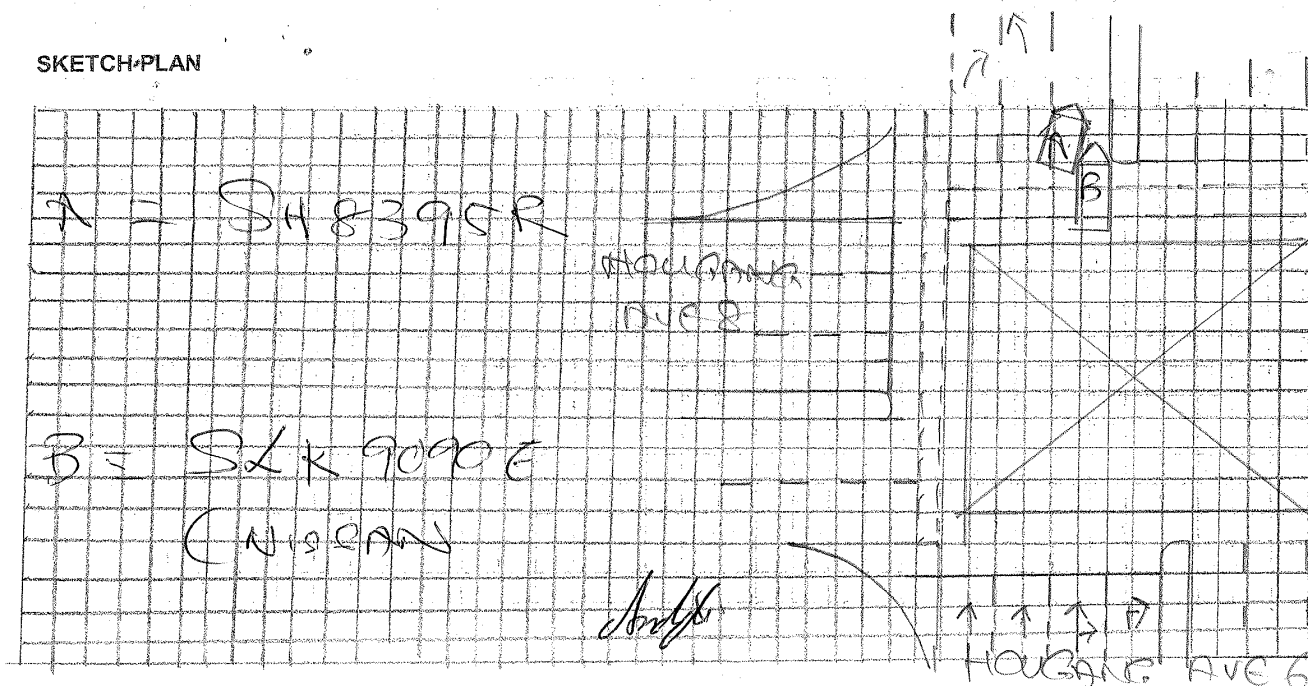 SKETCH PLAN
A = SH 8395R
HOUGANG
AVE 8
A
B
B = SLK 9090E
(NISSAN
HOUGANG AVE 6